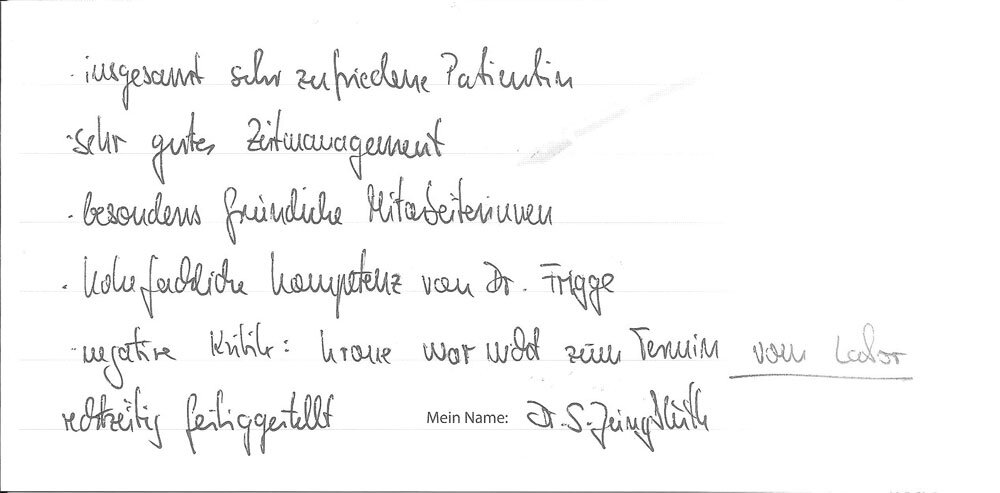 · insgesamt sehr zufriedene Patientin
· sehr gutes Zeitmanagement
· besonders freundliche Mitarbeiterinnen
· hohe fachliche Kompetenz von Dr. Frigge
- negative Kritik: Krone war nicht zum Termin vom Labor
rechtzeitig fertiggestellt Mein Name: Dr. S.